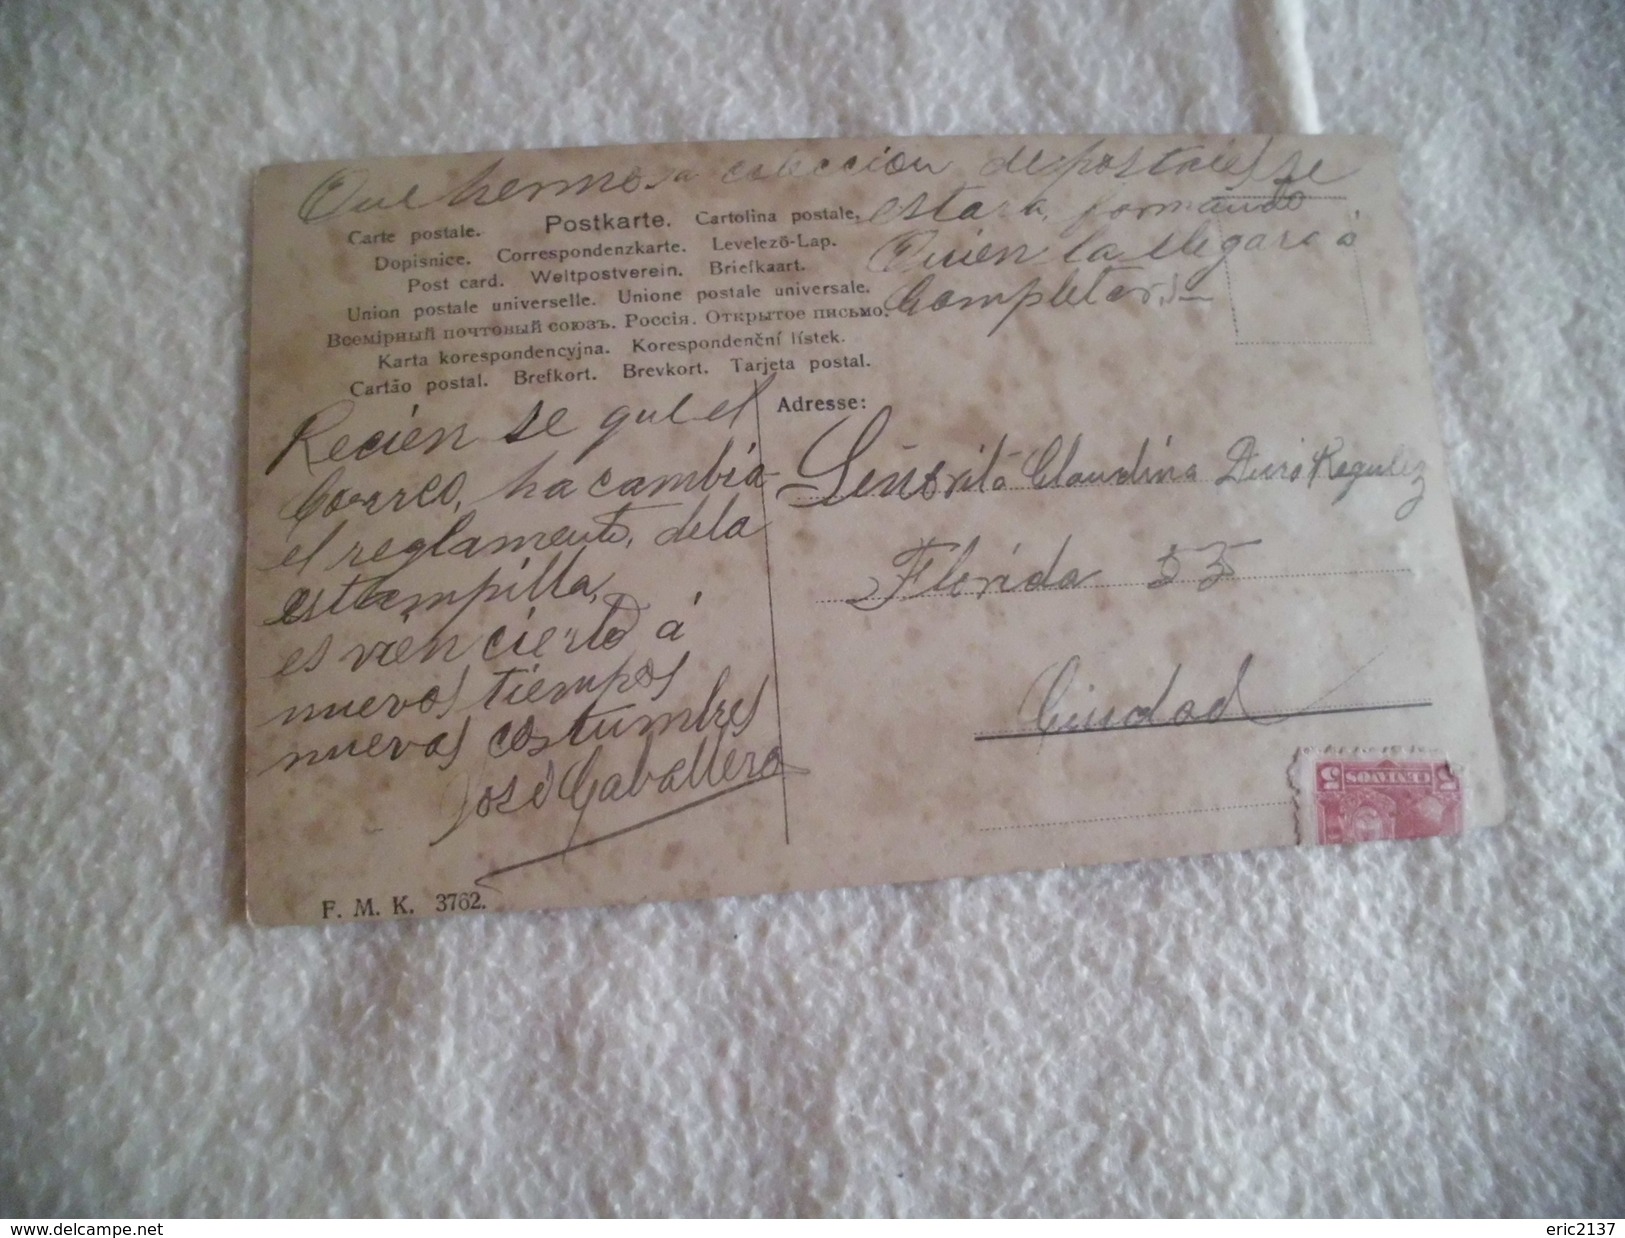 Que hermosa coleccion de postales se
estara formando
Quien la llegara á
Completar.
Carte postale. Postkarte. Cartolina postale.
Dopisnice. Correspondenzkarte. Levelező-Lap.
Post card. Weltpostverein. Briefkaart.
Union postale universelle. Unione postale universale.
Всемірный почтовый союзъ. Россія. Открытое письмо.
Karta korespondencyjna. Korespondenční lístek.
Cartão postal. Brefkort. Brevkort. Tarjeta postal.
Recien se que el
Correo, ha cambia
el reglamento, de la
estampilla,
es vien cierto á
nuevos tiempos
nuevas costumbres
José Caballero
Adresse:
Señorita Claudina Regulez
Florida 55
Ciudad
5 CENTAVOS 5
F. M. K. 3762.
www.delcampe.net
eric2137